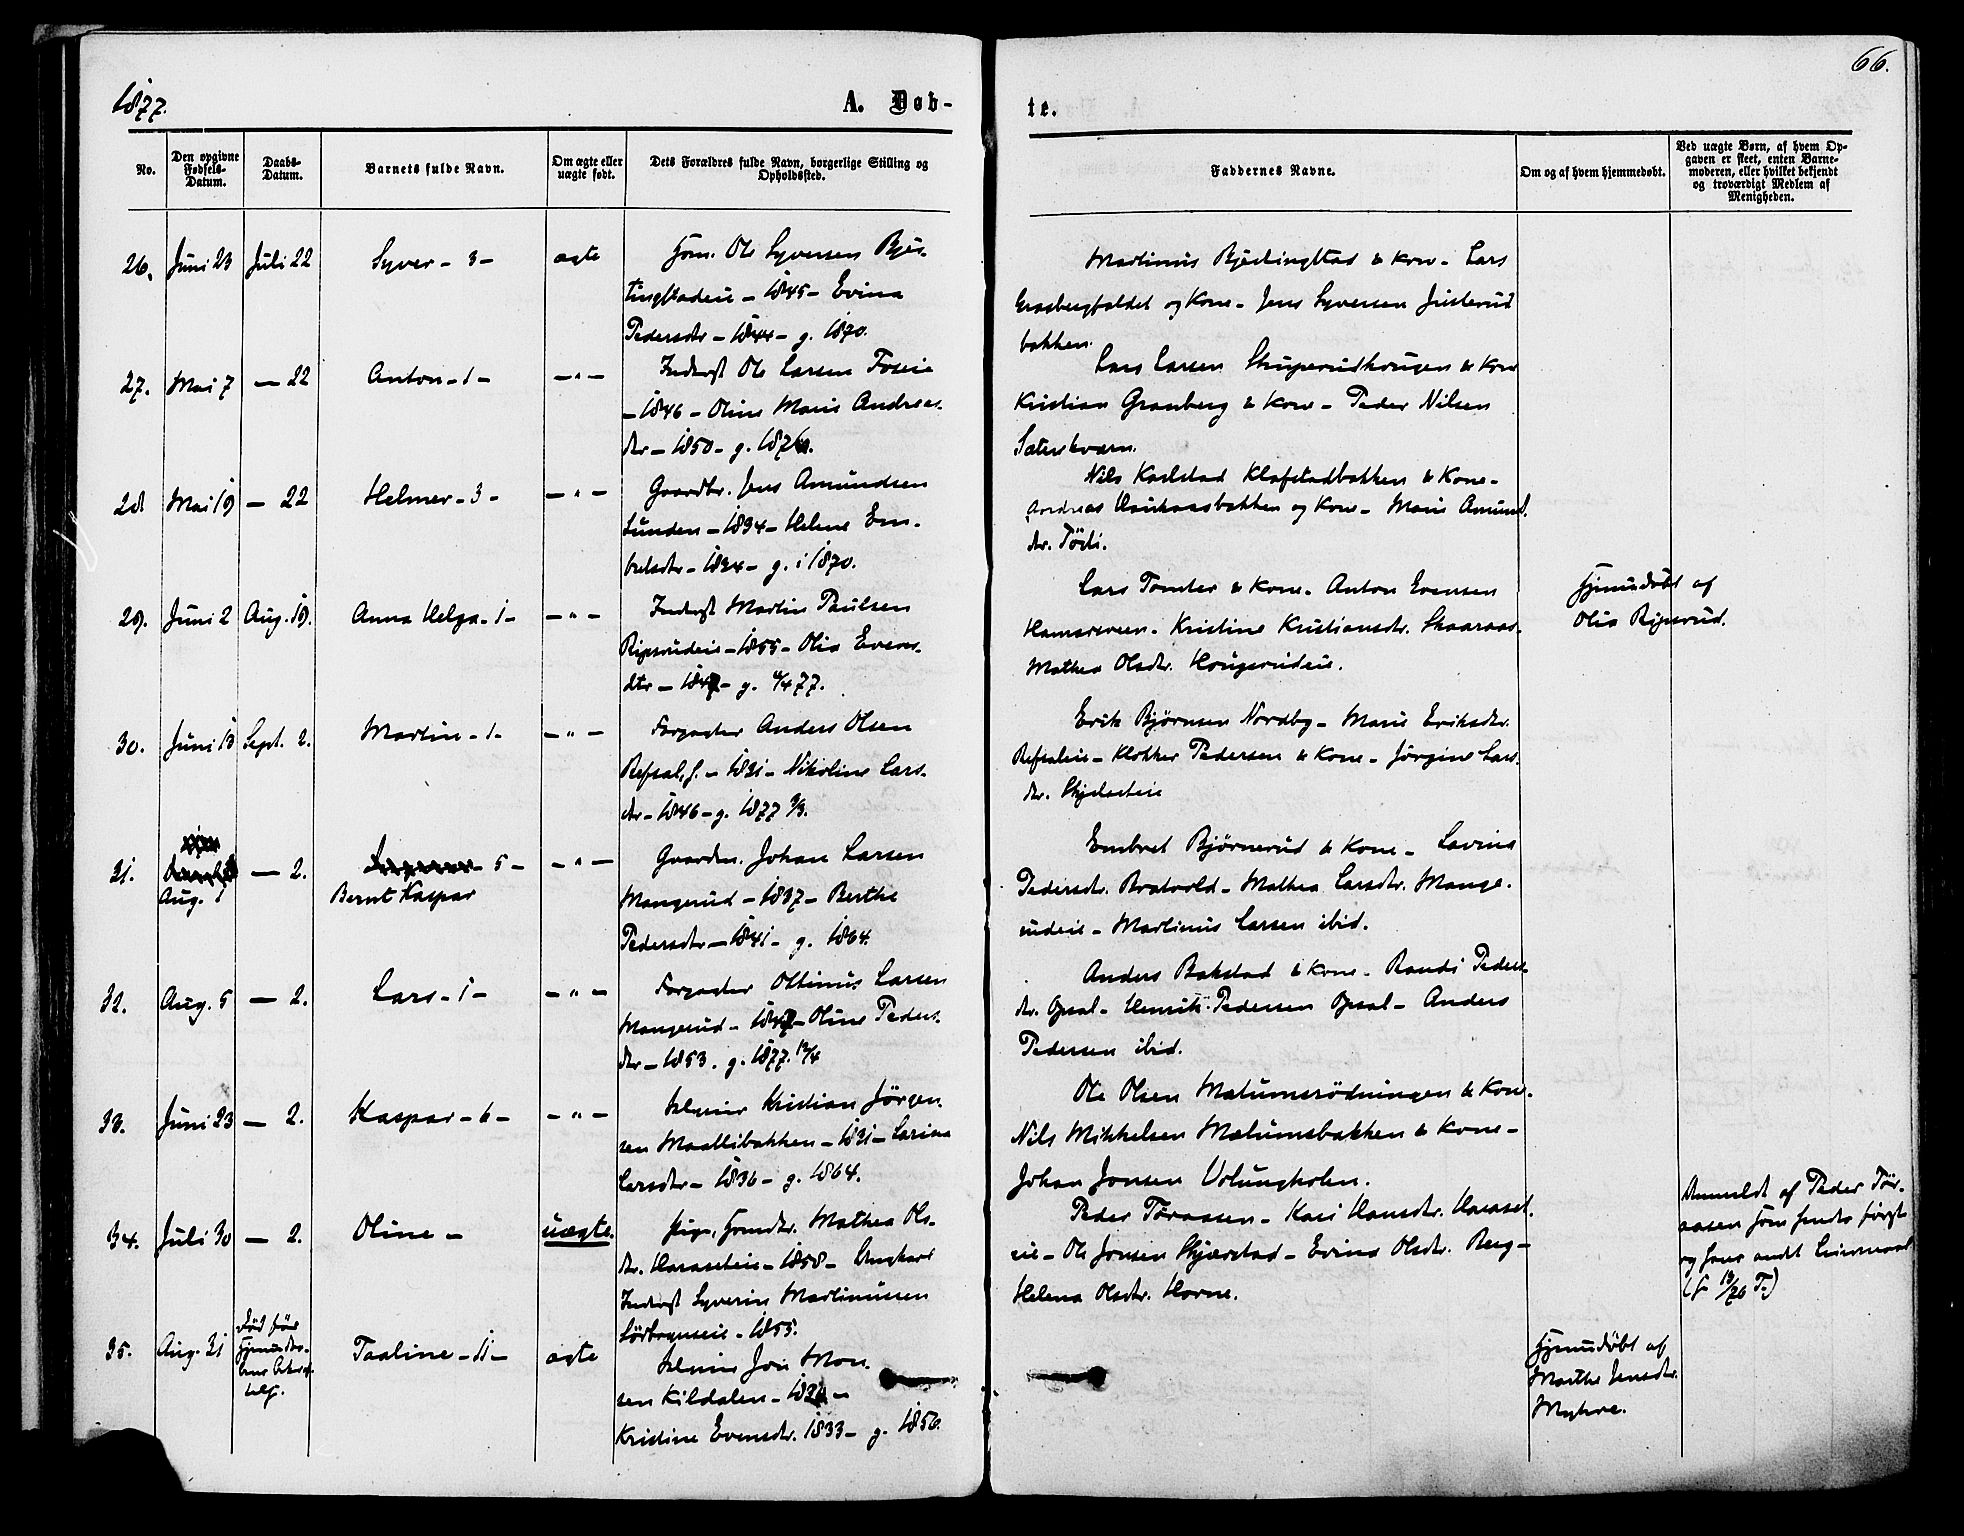 66.
1877. A. Døb- te.
No. Den opgivne Fødsels-Datum. Daabs-Datum. Barnets fulde Navn. Om ægte eller uægte født. Dets Forældres fulde Navn, borgerlige Stilling og Opholdssted. Faddernes Navne. Om og af hvem hjemmedøbt. Ved uægte Børn, af hvem Opgaven er skeet, enten Barnemoderen, eller hvilket bekjendt og troværdigt Medlem af Menigheden.
26. Juni 23 Juli 22 Syver - 3 - ægte Gom. Ole Syversen Bjer-
tingstadeie - 1845 - Evina
Pedersdtr - 1844 - g. 1870.
Martinus Bjertingstad & Kone - Lars
og Kone - Jens Syversen
bakken.
27. Mai 7 - 22 Anton - 1 - - " - Inderst Ole Larsen Foseie
- 1846 - Oline Marie Andreas-
dtr - 1850 - g. 1876.
Lars Larsen Struperudhougen & Kone
Kristian Granberg & Kone - Peder Nilsen
Sæterskværn.
28 Mai 19 - 22 Helmer - 3 - - " - Gaardbr. Jens Amundsen
Lunden - 1834 - Helene Em-
bretsdtr - 1834 - g. i 1870.
Nils Karlstad Klafstadbakken & Kone -
Andreas Haukaasbakken og Kone - Marie Amunds
dtr.
29. Juni 2 Aug. 19. Anna Helga - 1 - - " - Inderst Martin Paulsen
Ripsrudeie - 1855 - Olia Evens-
dtr - g. 4/4 77.
Lars Tomter & Kone. Anton Evensen
Kristine Kristiansdtr. Skaaraas -
Mathea Olsdtr. Hougerudeie.
Hjemmedøbt af
Olia Ripsrud.
30. Juni 13 Sept. 2. Martin - 1 - - " - Forpagter Anders Olsen
Refsal, s. - 1831 - Nikoline Lars-
dtr - 1846 - g. 1877 3/3.
Erik Bjørnsen Nordby - Marie Eriksdtr.
Refsaleie - Klokker Pedersen & Kone - Jørgine Lars
dtr.
31. Aug. 1 - 2. - 5 - - " - Gaardm. Johan Larsen
Bernt Kaspar
Mangerud - 1837 - Berthe
Pedersdtr - 1841 - g. 1864.
Embret Bjørnerud & Kone - Lovine
Pedersdtr. Bratvold - Mathea Larsdtr. Mange-
rudeie - Martinus Larsen ibid.
32. Aug. 5 - 2. Lars - 1 - - " - Forpagter Oltinus Larsen
Mangerud - Oline Peders-
dtr - 1853. g. 1877. 12/4
Anders Bakstad & Kone - Randi Peders-
dtr. Opsal - Henrik Pedersen Opsal - Anders
Pedersen ibid.
33. Juni 23 - 2. Kaspar - 6 - - " - Selveier Kristian Jørgen-
sen Maallibakken - 1831 - Larine
Larsdtr - 1836 - g. 1864.
Ole Olsen Mælumsrödningen & Kone.
Nils Mikkelsen Mælumsbakken & Kone -
Johan Jonsen Volungholen.
34. Juli 30 - 2. Oline - uægte. Pige, Mathea Ols-
dtr. Haraseteie - 1858 - Ungkarl
Inderst Syverin Martinusen
1855.
Peder Toraasen - Kari Hansdtr. Haraset-
eie - Ole Jonsen Skjærstad - Evina Olsdtr. Berg -
Helena Olsdtr. Horne.
Anmeldt af Peder Tør-
aasen som hendes første
og hans andet Leiermaal
35. Aug. 31 Død før
Taaline - 11 - ægte Selveier Jon Mon-
sen Kildalen -
Kristine Evensdtr. 1833 - g. 1856.
Hjemmedøbt af
Marthe Jensdtr.
Myhre.